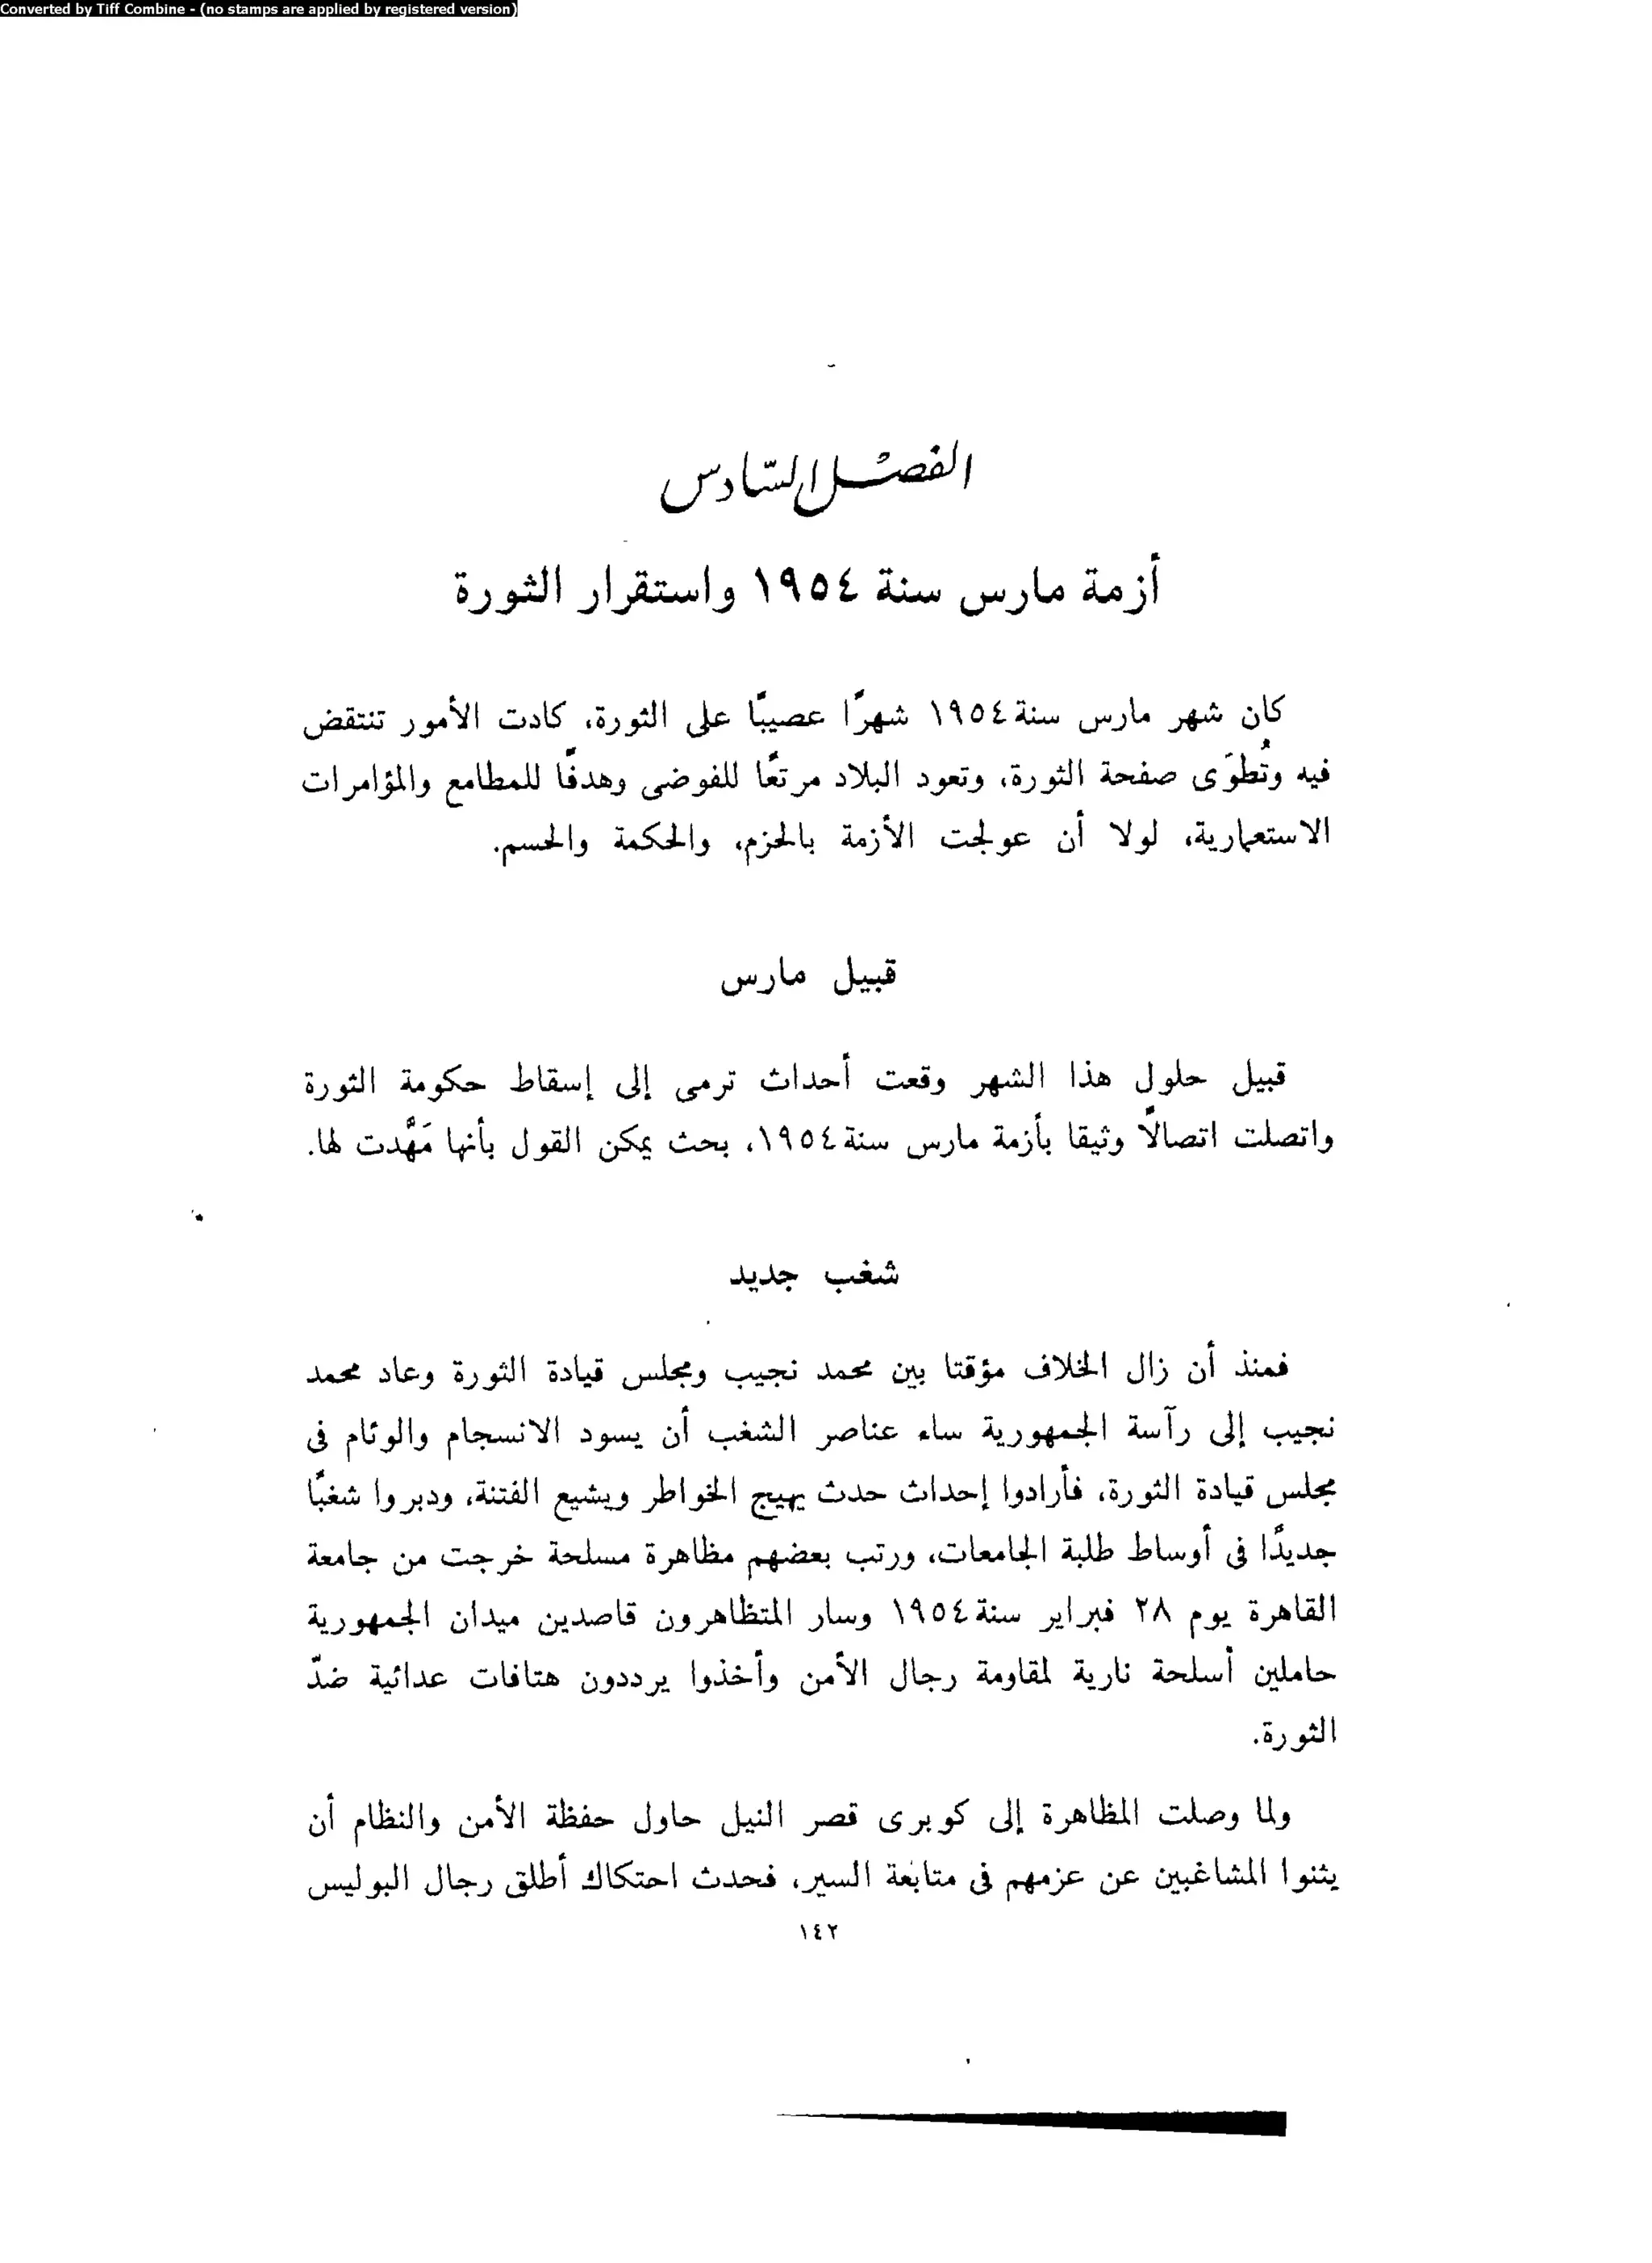 Converted by Tiff Combine - (no stamps are applied by registered version)
الفصل السّادس
أزمة مارس سنة ١٩٥٤ واستقرار الثورة
كان شهر مارس سنة ١٩٥٤ شهرًا عصيبًا على الثورة، كادت الأمور تنتقض
فيه وتُطوَى صفحة الثورة، وتعود البلاد مرتعًا للفوضى وهدفًا للمطامع والمؤامرات
الاستعمارية، لولا أن عولجت الأزمة بالحزم، والحكمة والحسم.
قبيل مارس
قبيل حلول هذا الشهر وقعت أحداث ترمى إلى إسقاط حكومة الثورة
واتصلت اتصالًا وثيقا بأزمة مارس سنة ١٩٥٤، بحث يمكن القول بأنها مَهَّدت لها.
شغب جديد
فمنذ أن زال الخلاف مؤقتا بين محمد نجيب ومجلس قيادة الثورة وعاد محمد
نجيب إلى رآسة الجمهورية ساء عناصر الشغب أن يسود الانسجام والوئام فى
مجلس قيادة الثورة، فأرادوا إحداث حدث يهيج الخواطر ويشيع الفتنة، ودبروا شغبًا
جديدًا فى أوساط طلبة الجامعات، ورتب بعضهم مظاهرة مسلحة خرجت من جامعة
القاهرة يوم ٢٨ فبراير سنة ١٩٥٤ وسار المتظاهرون قاصدين ميدان الجمهورية
حاملين أسلحة نارية لمقاومة رجال الأمن وأخذوا يرددون هتافات عدائية ضدّ
الثورة.
ولما وصلت المظاهرة إلى كوبرى قصر النيل حاول حفظة الأمن والنظام أن
يثنوا المشاغبين عن عزمهم فى متابعة السير، فحدث احتكاك أطلق رجال البوليس
١٤٢